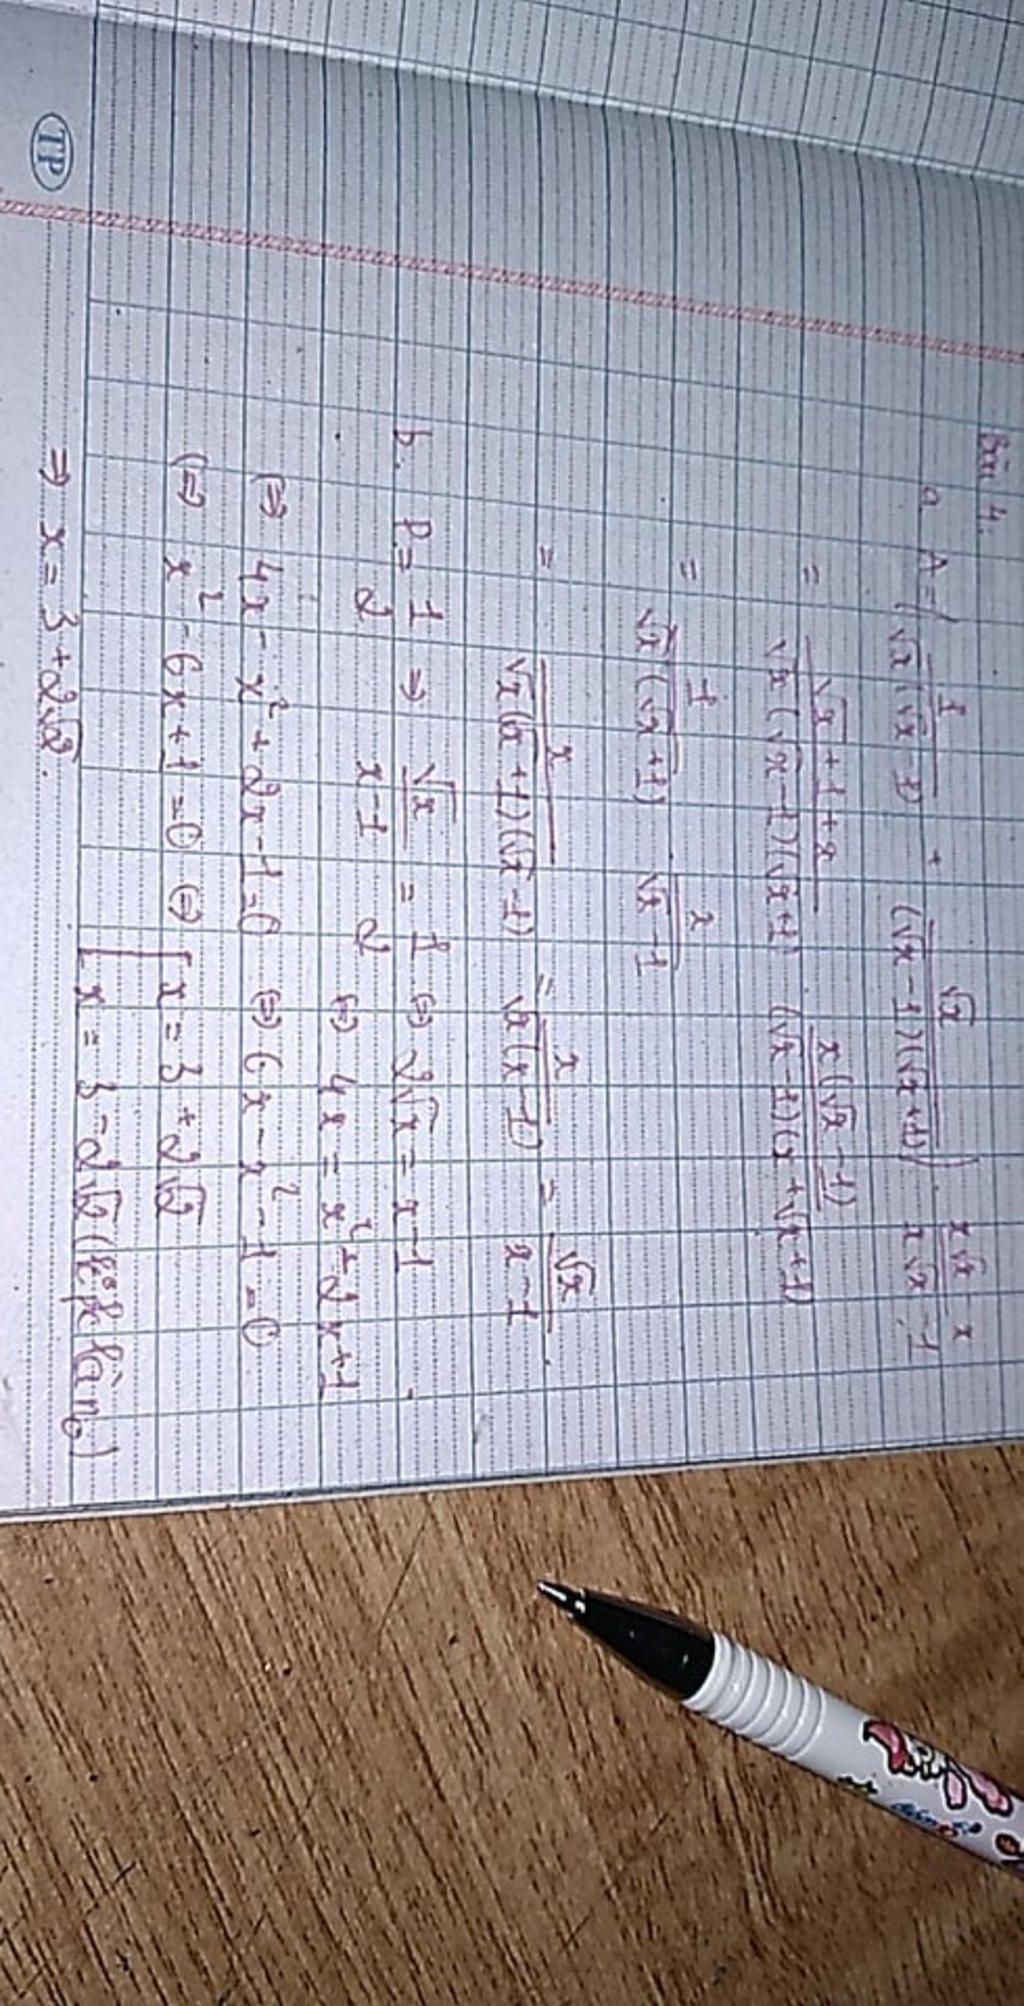 Bài 4.
a. A = ( 1/(√x(√x-1)) + √x/((√x-1)(√x+1)) ) . (x√x - x)/(x√x - 1)
= (√x+1+x)/(√x(√x-1)(√x+1)) (x(√x-1))/((√x-1)(x+√x+1))
= 1/(√x(√x+1)) x/(√x-1)
= x/(√x(√x+1)(√x-1)) = x/(√x(x-1)) = √x/(x-1).
b. P = 1/2 ⇒ √x/(x-1) = 1/2 ⇔ 2√x = x-1
⇔ 4x = x² - 2x + 1
⇔ 4x - x² + 2x - 1 = 0 ⇔ 6x - x² - 1 = 0
⇔ x² - 6x + 1 = 0 ⇔ [ x = 3 + 2√2
[ x = 3 - 2√2
⇒ x = 3 + 2√2.
TP